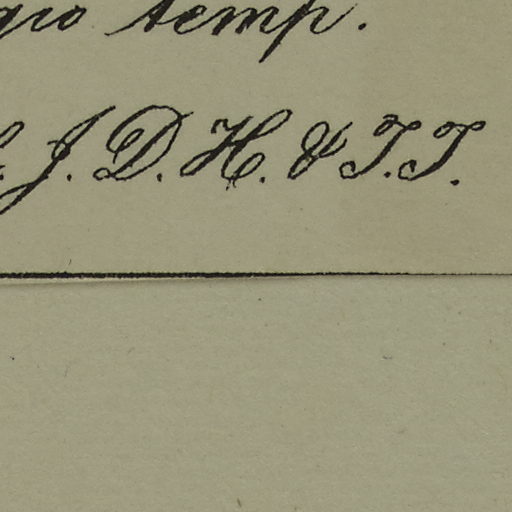 gio temp.
J. D. H. & T. T.